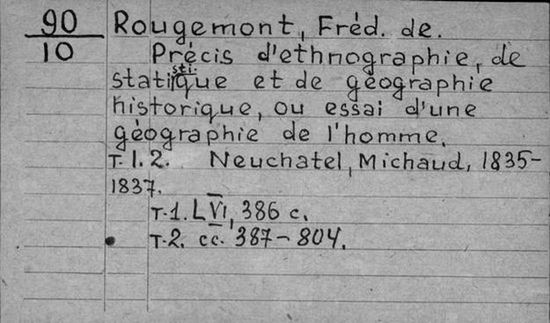 90
10
Rougemont, Fréd. de.
Précis d'ethnographie, de
statistique et de géographie
historique, ou essai d'une
géographie de l'homme.
T. 1. 2. Neuchatel, Michaud, 1835-
1837.
T.1. LVI, 386 c.
T.2. cc. 387-804.